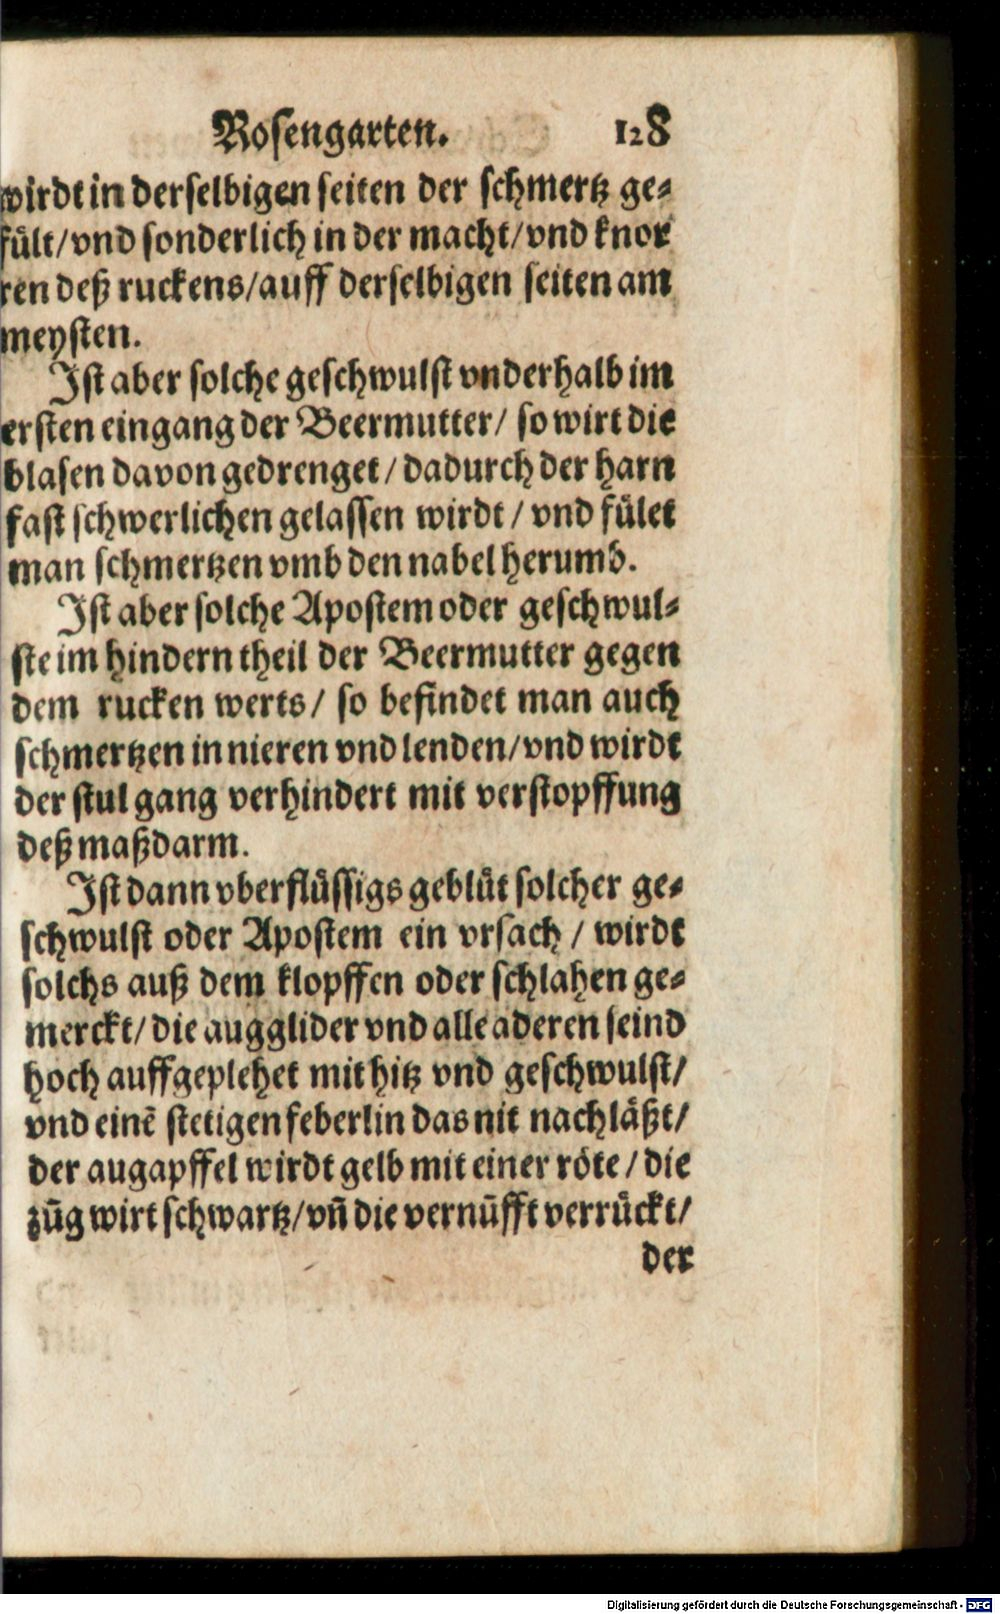 Rosengarten. 128
wirdt in derselbigen seiten der schmertz ge-
fült/vnd sonderlich in der macht/vnd knor
ren deß ruckens/auff derselbigen seiten am
meysten.
Ist aber solche geschwulst vnderhalb im
ersten eingang der Beermutter/ so wirt die
blasen davon gedrenget/dadurch der harn
fast schwerlichen gelassen wirdt/vnd fület
man schmertzen vmb den nabel herumb.
Ist aber solche Apostem oder geschwul-
ste im hindern theil der Beermutter gegen
dem rucken werts/ so befindet man auch
schmertzen in nieren vnd lenden/vnd wirdt
der stul gang verhindert mit verstopffung
deß maßdarm.
Ist dann vberflüssigs geblüt solcher ge-
schwulst oder Apostem ein vrsach/ wirdt
solchs auß dem klopffen oder schlahen ge-
merckt/die augglider vnd alle aderen seind
hoch auffgeplehet mit hitz vnd geschwulst/
vnd einē stetigen feberlin das nit nachläßt/
der augapffel wirdt gelb mit einer röte/die
zūg wirt schwartz/vñ die vernūfft verrückt/
der
Digitalisierung gefördert durch die Deutsche Forschungsgemeinschaft - DFG